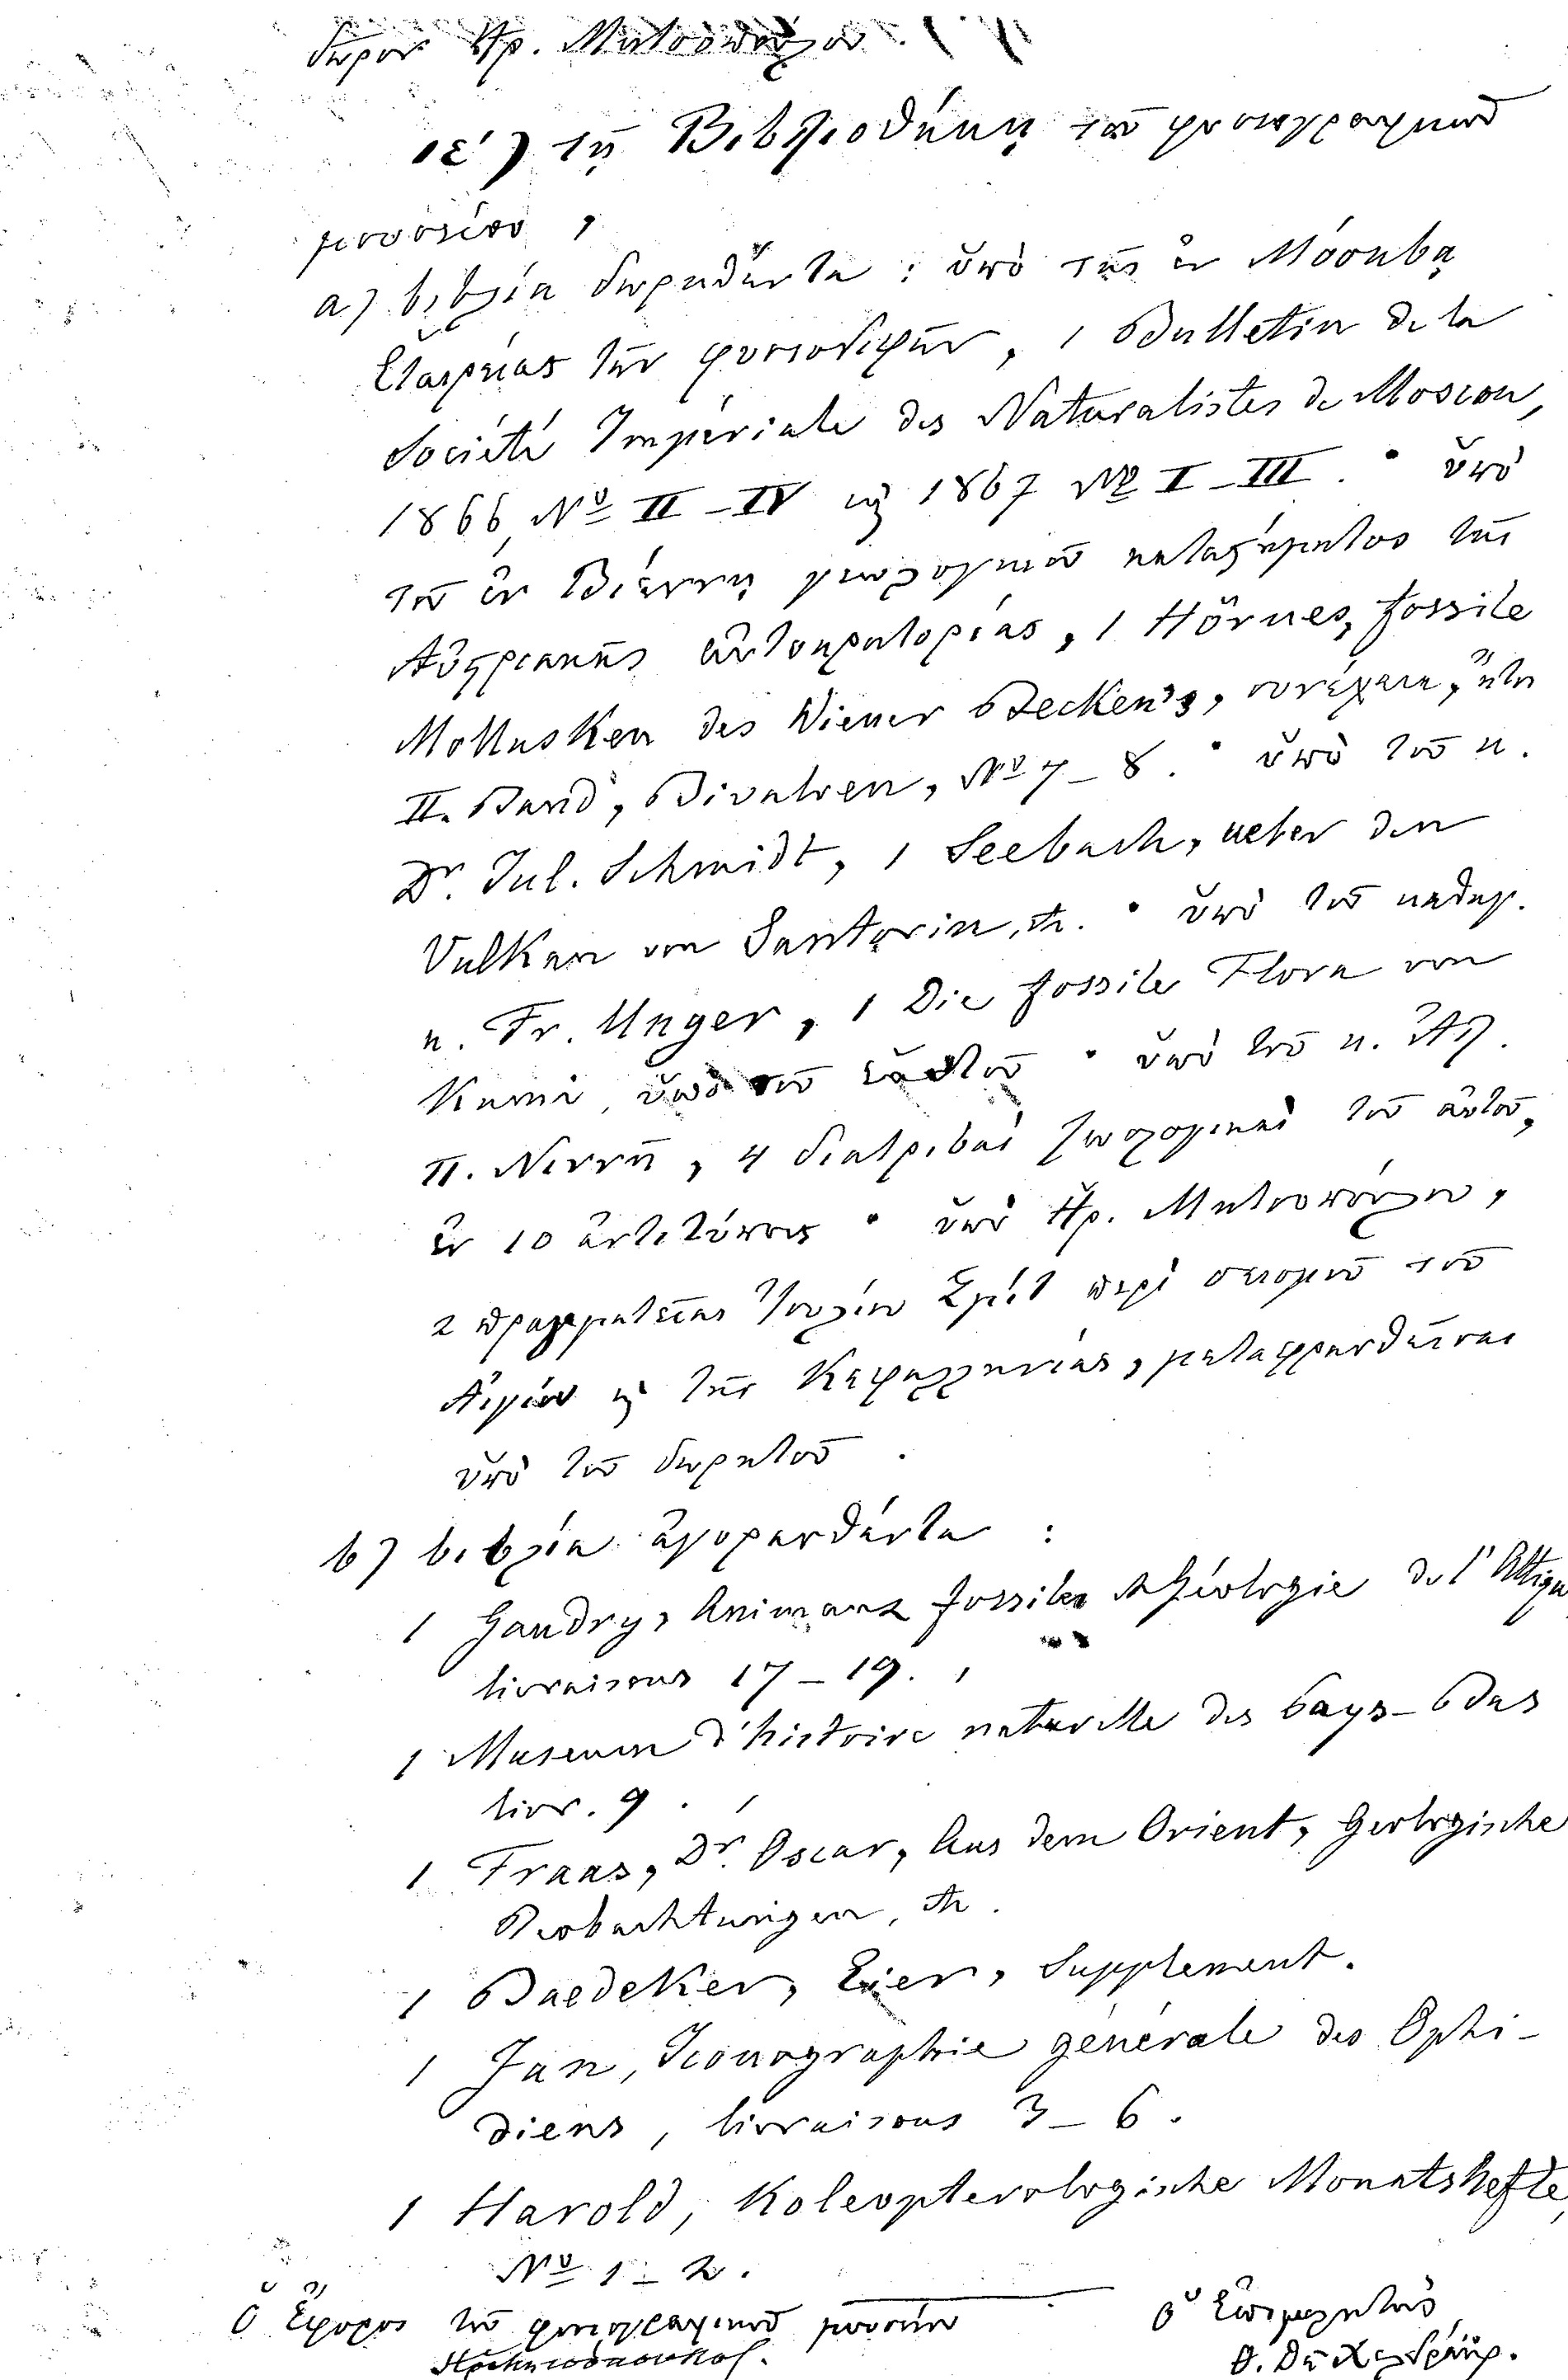 δῶρον Ἡρ. Μητσοπούλου.
ιε') τῇ Βιβλιοθήκῃ τοῦ φυσιογραφικοῦ
μουσείου,
α) βιβλία δωρηθέντα : ὑπὸ τῆς ἐν Μόσχβᾳ
Ἑταιρείας τῶν φυσιοδιφῶν, 1 Bulletin de la
Société Impériale des Naturalistes de Moscou,
1866, Nº II–IV καὶ 1867 Nº I–III. · ὑπὸ
τοῦ ἐν Βιέννῃ γεωλογικοῦ καταστήματος τῆς
Αὐστριακῆς αὐτοκρατορίας, 1 Hörnes, fossile
Mollusken des Wiener Beckens, συνέχεια, ἤτοι
II. Band, Bivalven, Nº 7–8. · ὑπὸ τοῦ κ.
Dr. Jul. Schmidt, 1 Seebach, ueber den
Vulkan von Santorin, etc. · ὑπὸ τοῦ καθηγ.
κ. Fr. Unger, 1 Die fossile Flora von
Kumi, ὑπὸ τοῦ ἑαυτοῦ · ὑπὸ τοῦ κ. Ἀλ.
Π. Νιννῆ, 4 διατριβαὶ ζωολογικαὶ τοῦ αὐτοῦ,
ἐν 10 ἀντιτύποις · ὑπὸ Ἡρ. Μητσοπούλου,
2 πραγματεῖαι Ἰουλίου Σμίτ περὶ σεισμοῦ τοῦ
Αἰγίου καὶ τῆς Κεφαλληνίας, μεταφρασθεῖσαι
ὑπὸ τοῦ δωρητοῦ.
β) βιβλία ἀγορασθέντα :
1 Gaudry, Animaux fossiles et Géologie de l'Attique
livraisons 17–19.
1 Museum d'histoire naturelle des Pays-Bas
livr. 9.
1 Fraas, Dr. Oscar, Aus dem Orient, Geologische
Beobachtungen, etc.
1 Baedeker, Eier, Supplement.
1 Jan, Iconographie générale des Ophi-
diens, livraisons 3–6.
1 Harold, Koleopterologische Monatshefte,
Nº 1–2.
Ὁ Ἔφορος τοῦ φυσιογραφικοῦ μουσείου
Ὁ Ἐπιμελητὴς
Θ. Δὲ Χελδράιχ.